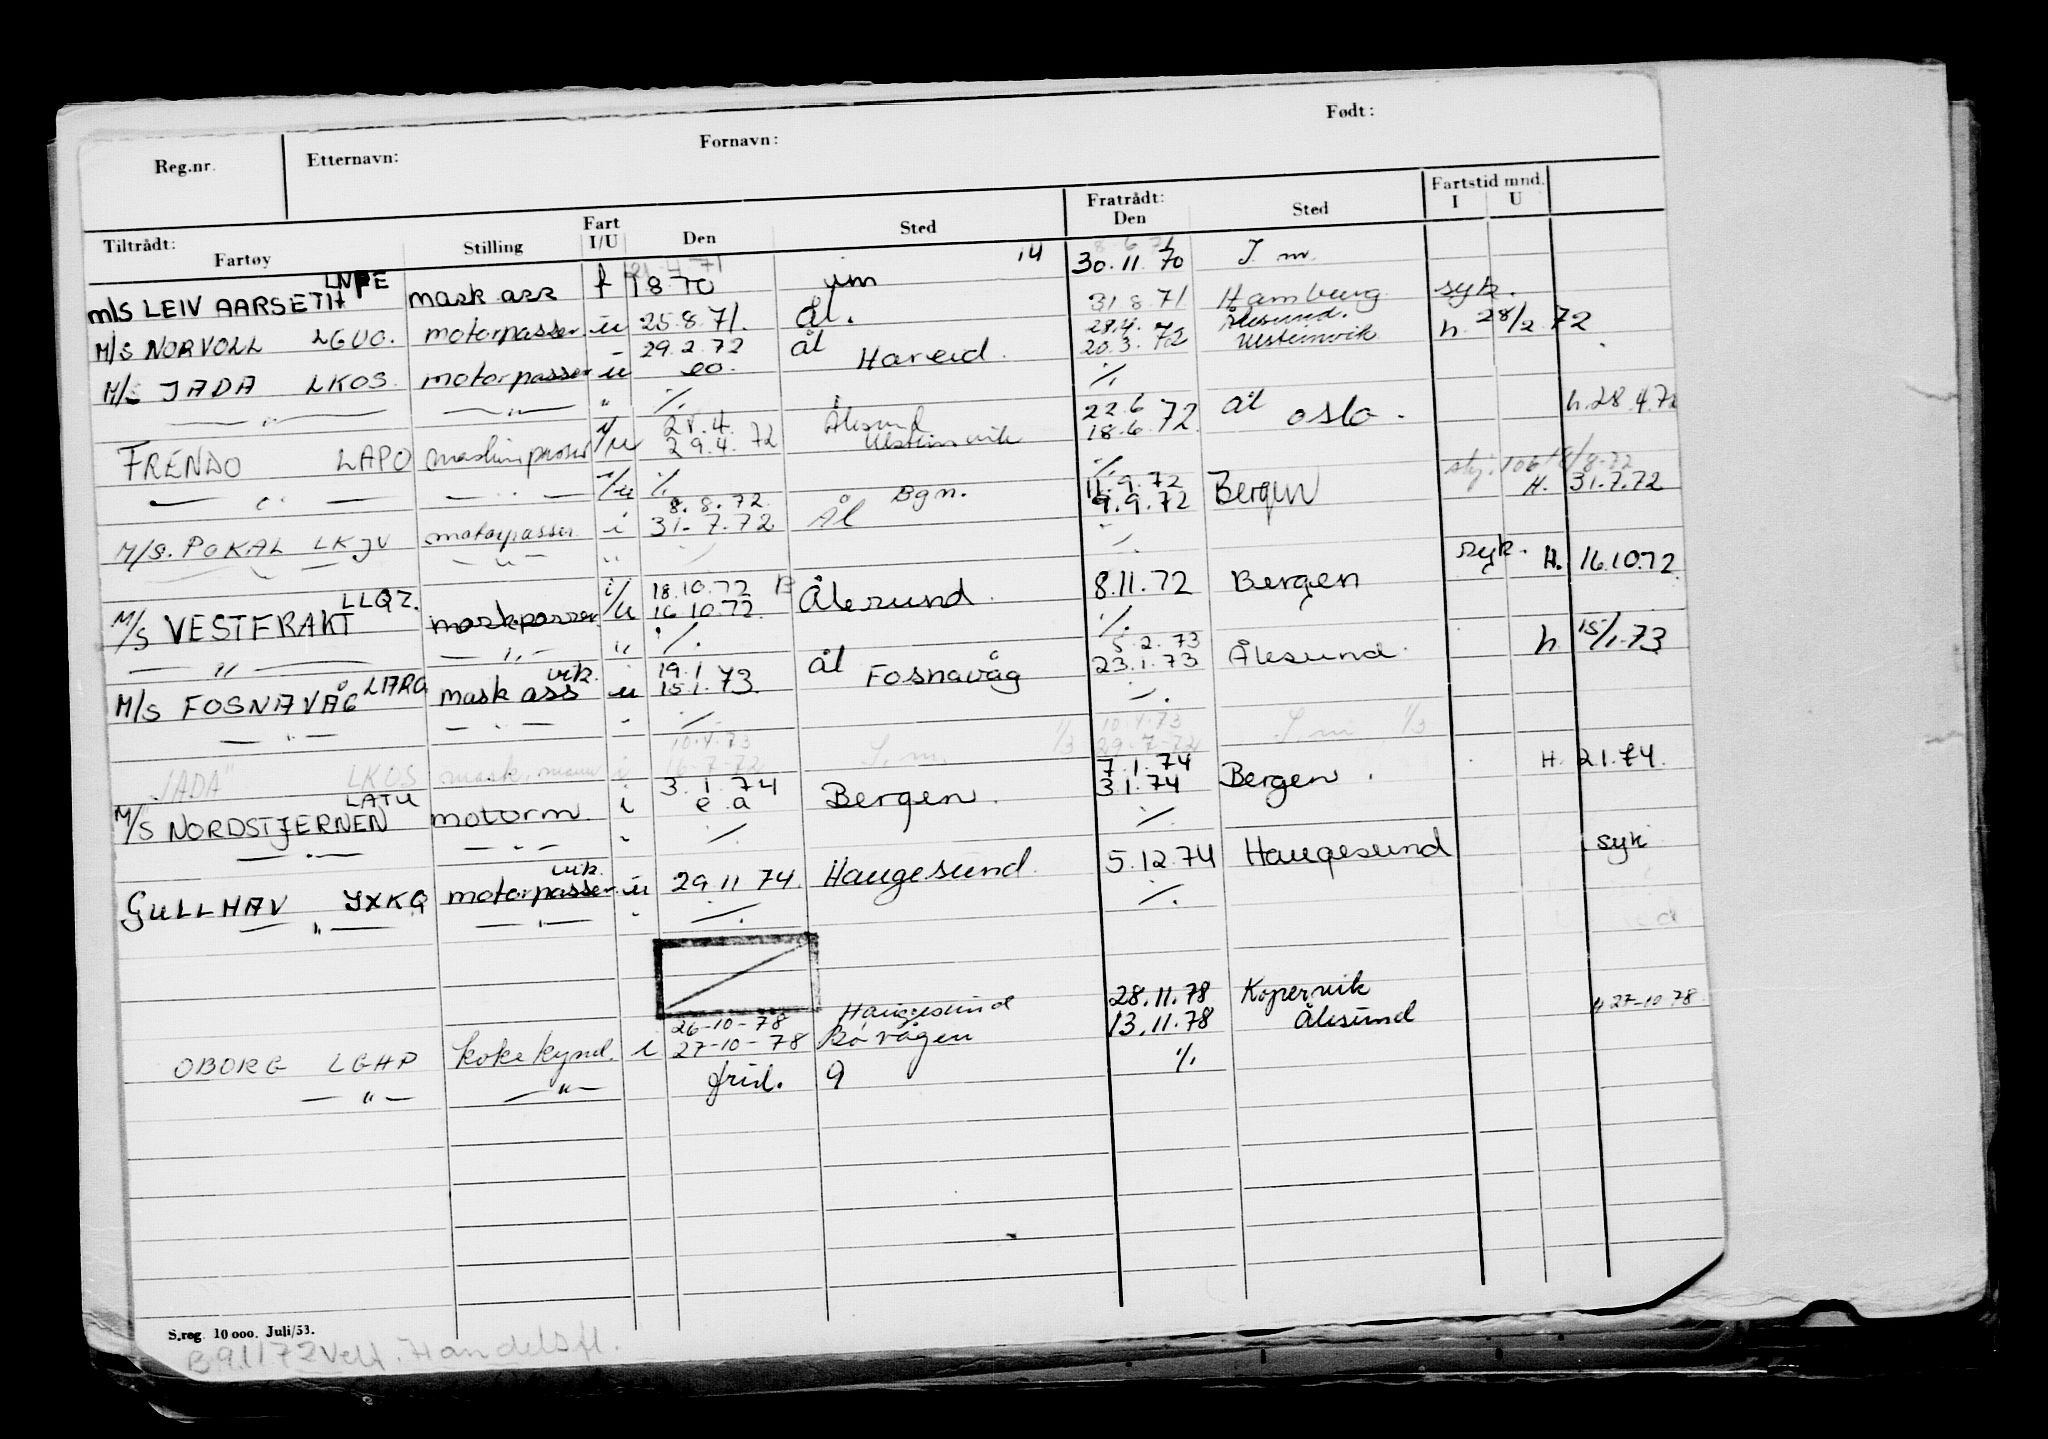 Reg.nr. Etternavn: Fornavn: Født:
Tiltrådt: Fartøy Stilling Fart I/U Den Sted Fratrådt: Den Sted Fartstid mnd. I U
8-6 71
LNPE 21.4.71 14
m/S LEIV AARSETH mask ass f 1 8 70 im 30.11.70 I m.
31.8.71 Hamburg syk.
M/S NORVOLL LGUO. motorpasser u 25.8.71. Ål. 28.4. Ålesund. h. 28/2.72
29.2.72 ål 20.3.72 Ulsteinvik
M/S JADA LKOS. motorpasser u eo. Hareid. %
— " — — " — " % 22.6. ål h.28.4.72
28.4. Ålesund 18.6.72. oslo.
FRENDO LAPO i/u 29.4.72 Ulsteinvik %
— " — — " — i/u % 11.9.72 8/8-72
8.8.72. Bgn. 9.9.72 Bergen H. 31.7.72
M/S. POKAL LKJV motorpasser i 31.7.72 Ål %
— " — — " — " % syk.
LLQZ. i/u 18.10.72 B 8.11.72 Bergen H. 16.10.72
M/S VESTFRAKT maskpasser 16.10.72 Ålesund. %
— " — — " — " % 5.2.73 h. 15/1.73
LARG vik. 19.1 ål 23.1.73 Ålesund.
M/S FOSNAVÅG mask ass u 15.1.73 Fosnavåg %
— " — — " — " % 10.4.73
10.4.73 I m. 1/3 29.7.72 I m 1/3
"JADA" LKOS mask.mann i 16-7-72 7.1.74 H. 2.1.74.
LATU 3.1.74 3.1.74 Bergen.
M/S NORDSTJERNEN motorm. i e a Bergen. %
— " — — " — " %
vik. 5.12.74 Haugesund syk
GULLHAV JXKG motorpasser u 29 11 74. Haugesund. %
— " — — " — " %
28.11.78 Kopervik
26-10-78 Haugesund 13.11.78 Ålesund h 27-10 78.
OBORG LGHP kokekynd. i 27-10-78 Båvågen %
— " — — " — frid. 9
S.reg. 10 000. Juli/53.
B91172 Velf. Handelsfl.